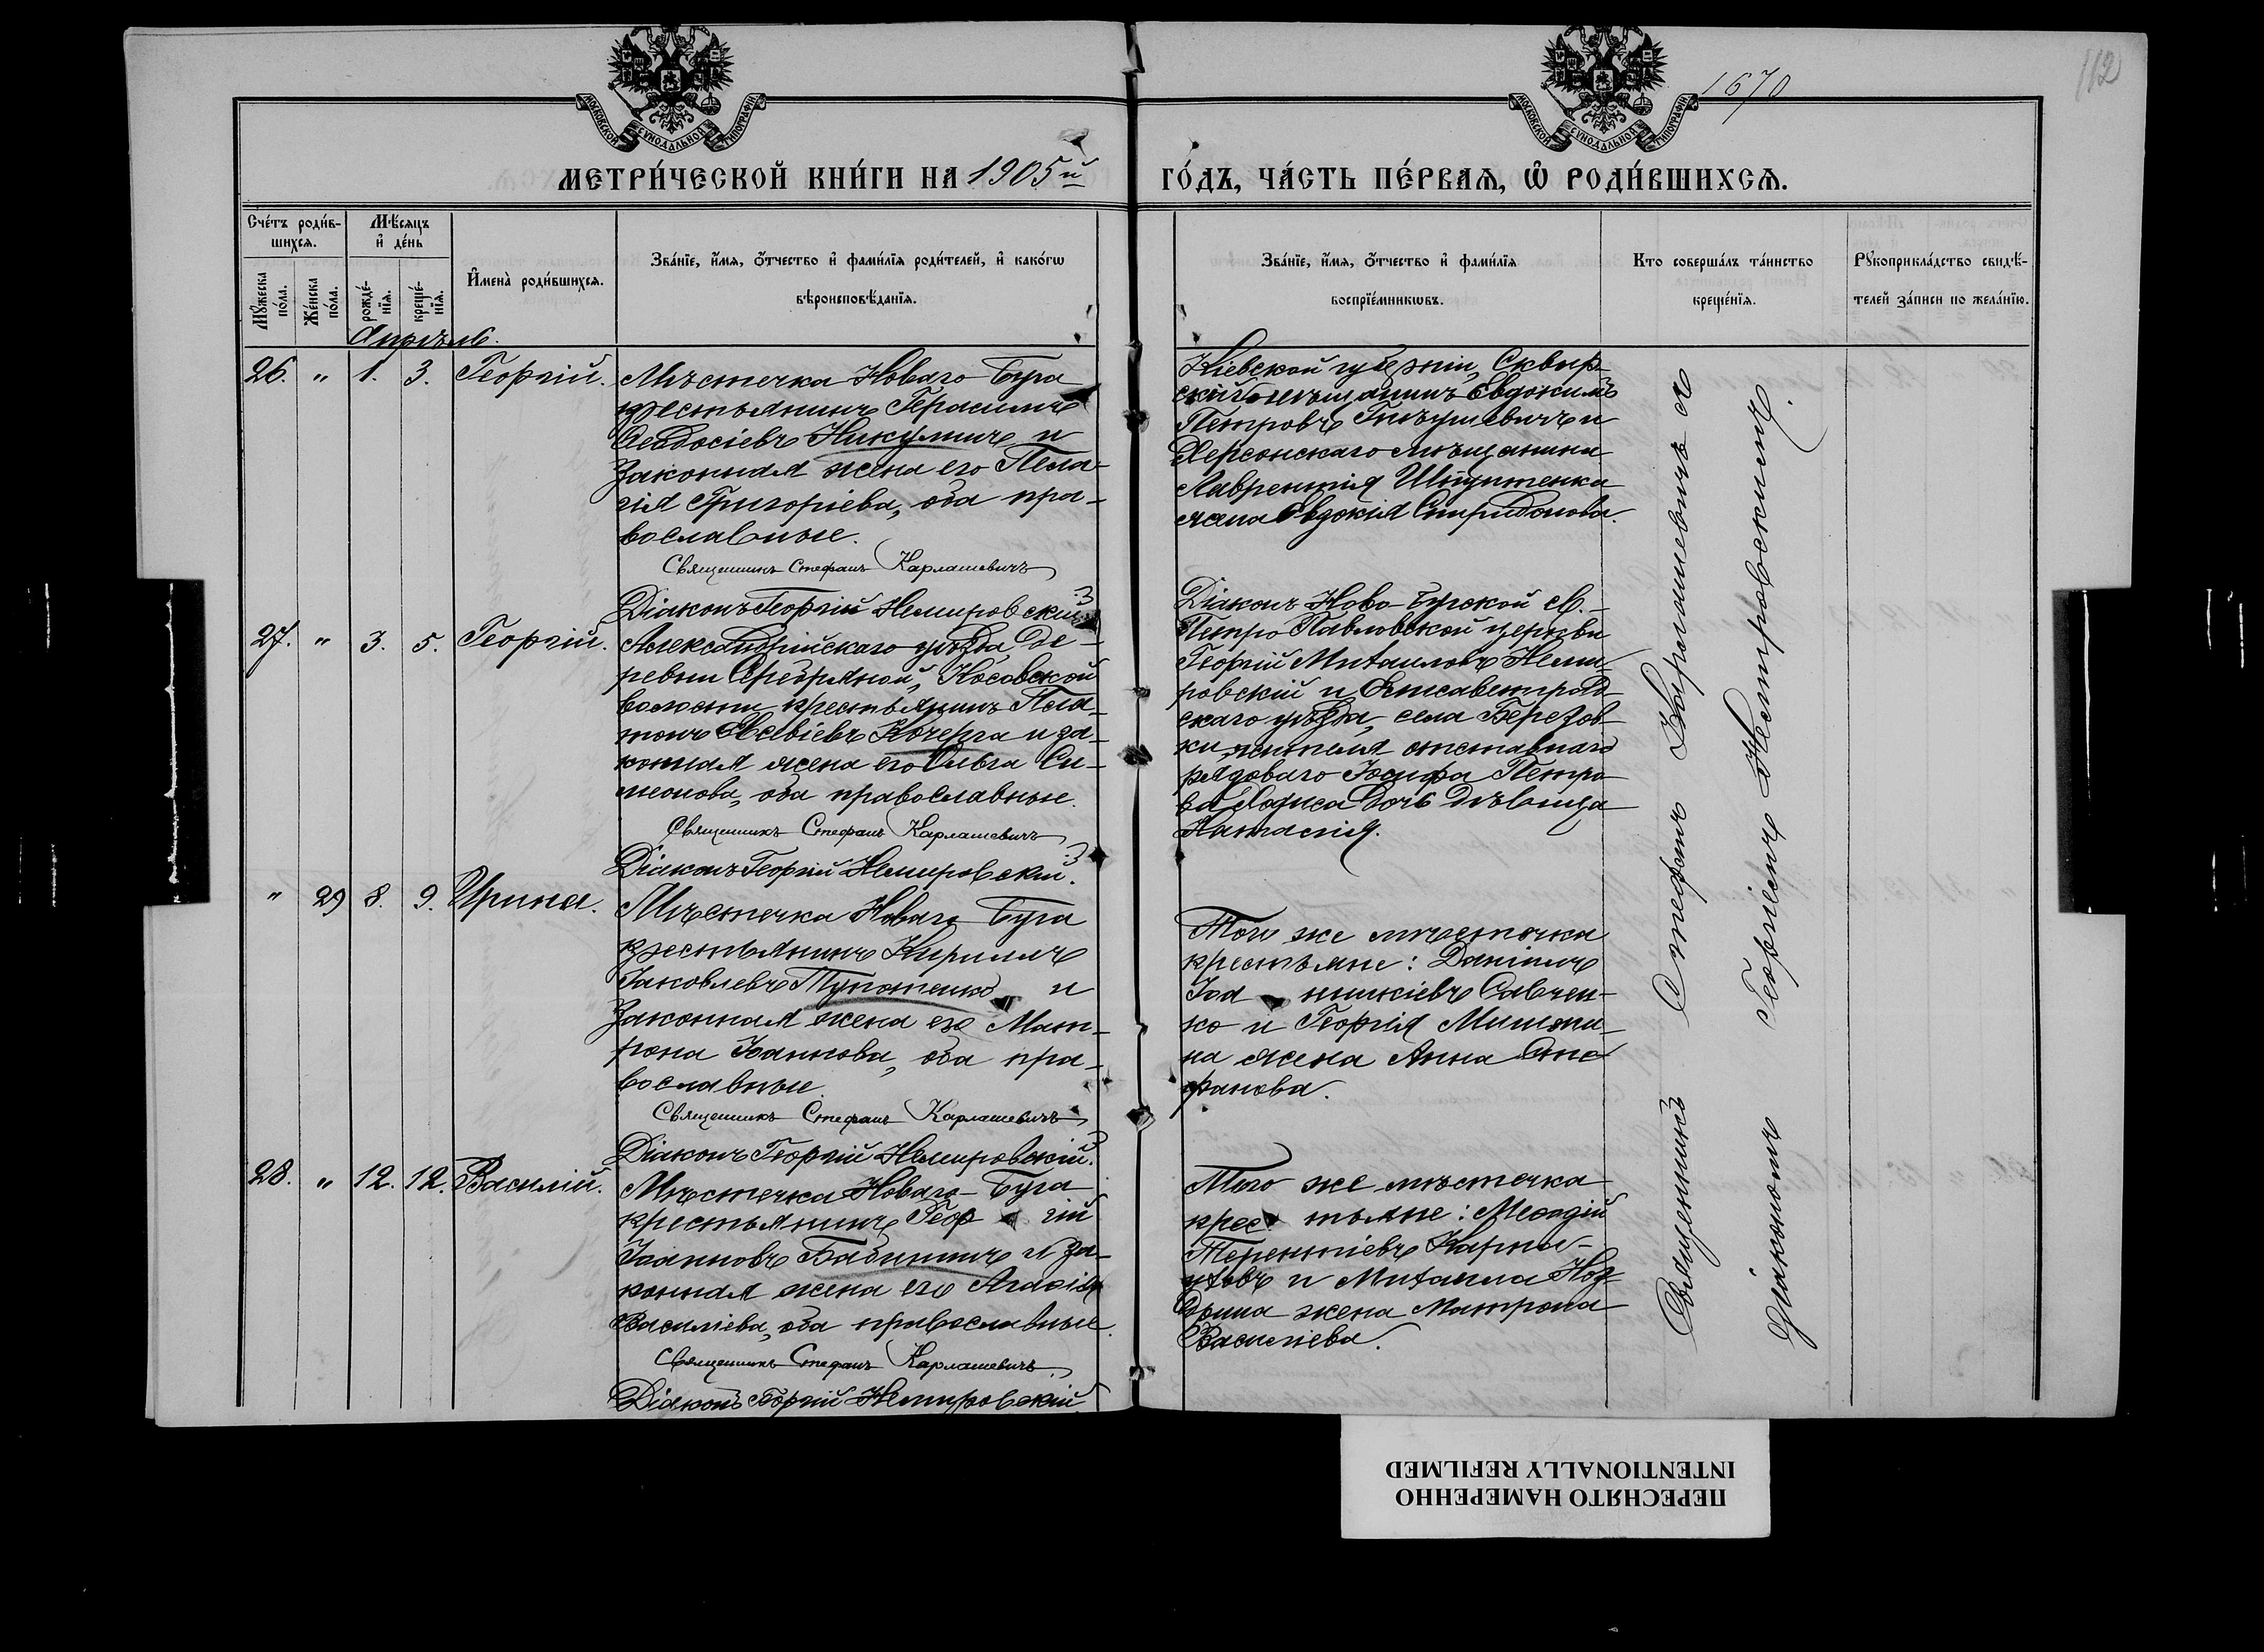 1670
112
МОСКОВСКОЙ СѴНОДАЛЬНОЙ ТИПОГРАФІИ
МОСКОВСКОЙ СѴНОДАЛЬНОЙ ТИПОГРАФІИ
МЕТРИ́ЧЕСКОЙ КНИ́ГИ НА 1905й ГО́ДЪ, ЧА́СТЬ ПЕ́РВАѦ, Ѡ҆ РОДИ́ВШИХСѦ.
Сче́тъ роди́в-
шихсѧ.
Мꙋ́жеска по́ла.
Же́нска по́ла.
Мѣ́сѧцъ
и҆ де́нь
рожде́-
нїѧ.
креще́-
нїѧ.
И҆мена̀ роди́вшихсѧ.
Зва́нїе, и҆́мѧ, ѻ҆́тчество и҆ фами́лїѧ роди́телей, и҆ како́гѡ
вѣроисповѣ́данїѧ.
Зва́нїе, и҆́мѧ, ѻ҆́тчество и҆ фами́лїѧ
воспрїе́мникѡвъ.
Кто соверша́лъ та́инство
креще́нїѧ.
Рꙋкоприкла́дство свидѣ́-
телей за́писи по жела́нїю.
Апрѣль.
26. " 1. 3. Георгій.
Мѣстечка Новаго Буга
крестьянинъ Герасимъ
Ѳеодосіевъ Никулинъ и
законная жена его Пела-
гія Григоріева, оба пра-
вославные.
Священникъ Стефанъ Карлашевичъ
Діаконъ Георгій Немировскій
Кіевской губерніи, Сквир-
скій мѣщанинъ Евдокимъ
Петровъ и
Херсонскаго мѣщанина
Лаврентія
жена Евдокія Спиридонова.
27. " 3. 5. Георгій.
Александрійскаго уѣзда, де-
ревни Серебряной, Косовской
волости крестьянинъ Пла-
тонъ Евсевіевъ Кочерга и за-
конная жена его Ольга Си-
меонова, оба православные.
Священникъ Стефанъ Карлашевичъ
Діаконъ Георгій Немировскій.
Діаконъ Ново-Бугской св.-
Петро-Павловской церкви
Георгій Михаиловъ Неми-
ровскій и Елисаветград-
скаго уѣзда, села Березов-
ки, жителя отставнаго
рядоваго Іосифа Петро-
ва дочь дѣвица
Наталія.
" 29 8. 9. Ирина.
Мѣстечка Новаго Буга
крестьянинъ Кириллъ
Іаковлевъ и
законная жена его Мат-
рона Іоаннова, оба пра-
вославные.
Священникъ Стефанъ Карлашевичъ
Діаконъ Георгій Немировскій.
Того же мѣстечка
крестьяне: Даніилъ
Іоанникіевъ Савчен-
ко и Георгія Мишани-
на жена Анна Сте-
фанова.
28. " 12. 12. Василій.
Мѣстечка Новаго Буга
крестьянинъ Георгій
Іоанновъ Бабининъ и за-
конная жена его Агафія
Василіева, оба православные.
Священникъ Стефанъ Карлашевичъ
Діаконъ Георгій Немировскій
Того же мѣстечка
крестьяне: Меѳодій
Терентіевъ
и Михаила
жена Матрона
Василіева.
Священникъ Стефанъ Карлашевичъ съ
діакономъ Георгіемъ Немировскимъ.
ПЕРЕСНЯТО НАМЕРЕННО
INTENTIONALLY REFILMED